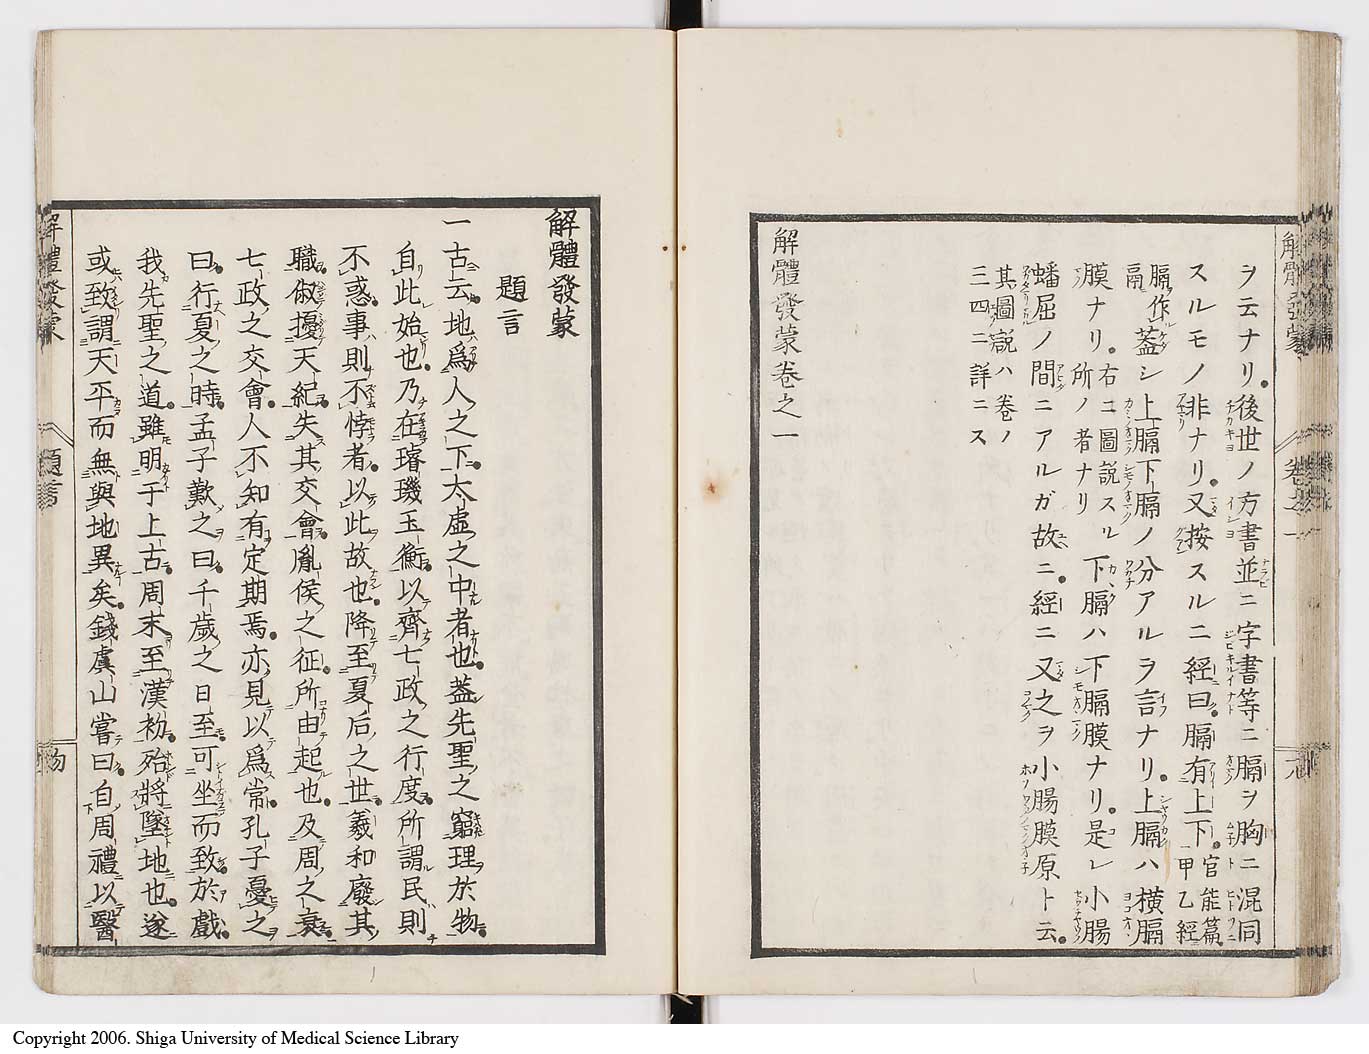 ヲ云ナリ。後世ノ方書並ニ字書等ニ膈ヲ胸ニ混同
スルモノ非ナリ。又按スルニ經曰。膈有上下。官能篇。甲乙經
膈作鬲 蓋シ上膈下膈ノ分アルヲ言ナリ。上膈ハ橫膈
膜ナリ。右ニ圖説スル所ノ者ナリ 下膈ハ下膈膜ナリ。是レ小腸
蟠屈ノ間ニアルガ故ニ。經ニ又之ヲ小腸膜原ト云。
其圖説ハ卷ノ
三四ニ詳ニス
解體發蒙卷之一
解體發蒙
卷之一
解體發蒙
題言
一古云。地爲人之下。太虛之中者也。蓋先聖之窮理於物。
自此始也。乃在璿璣玉衡。以齊七政之行度。所謂民則
不惑。事則不悖者。以此故也。降至夏后之世。羲和廢其
職。俶擾天紀。失其交會。胤侯之征。所由起也。及周之衰。
七政之交會。人不知有定期焉。亦見以爲常。孔子憂之
曰。行夏之時。孟子歎之曰。千歲之日至。可坐而致。於戲。
我先聖之道。雖明于上古。周末至漢初。殆將墜地也。遂
或致謂天平而無與地異矣。錢虞山嘗曰。自周禮以醫
解體發蒙
題言
Copyright 2006. Shiga University of Medical Science Library